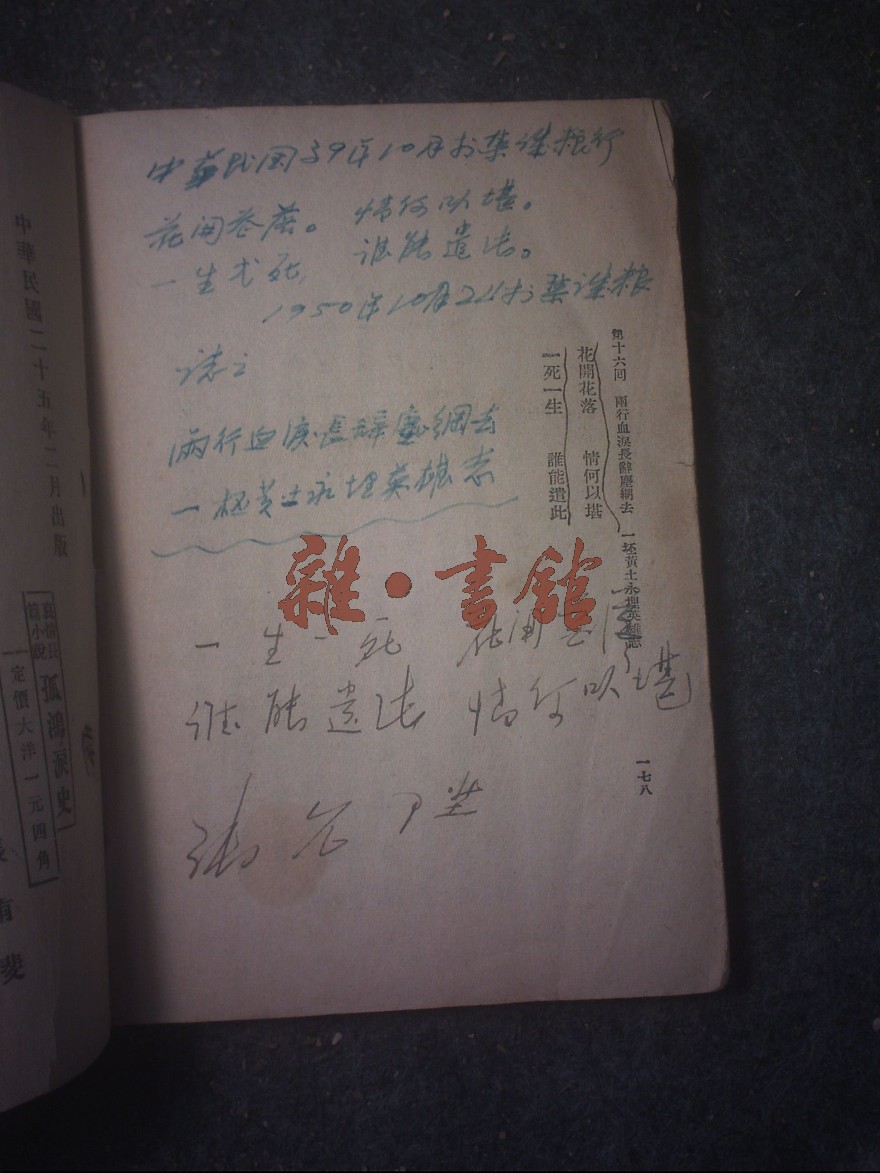 中華民國二十五年二月出版
哀情長篇小說 孤鴻淚史
定價大洋一元四角
有斐
第十六回 兩行血淚長辭塵網去 一坯黃土永埋英雄志
花開花落 情何以堪
一死一生 誰能遣此
一七八
中華民国39年10月于
花開花落。 情何以堪。
一生一死, 谁能遣
1950年10月24于
誌之
两行血淚長辭塵網去
一坯黄土永埋英雄志
雜·書館
一生一死 花開花落
谁能遣 情何以堪